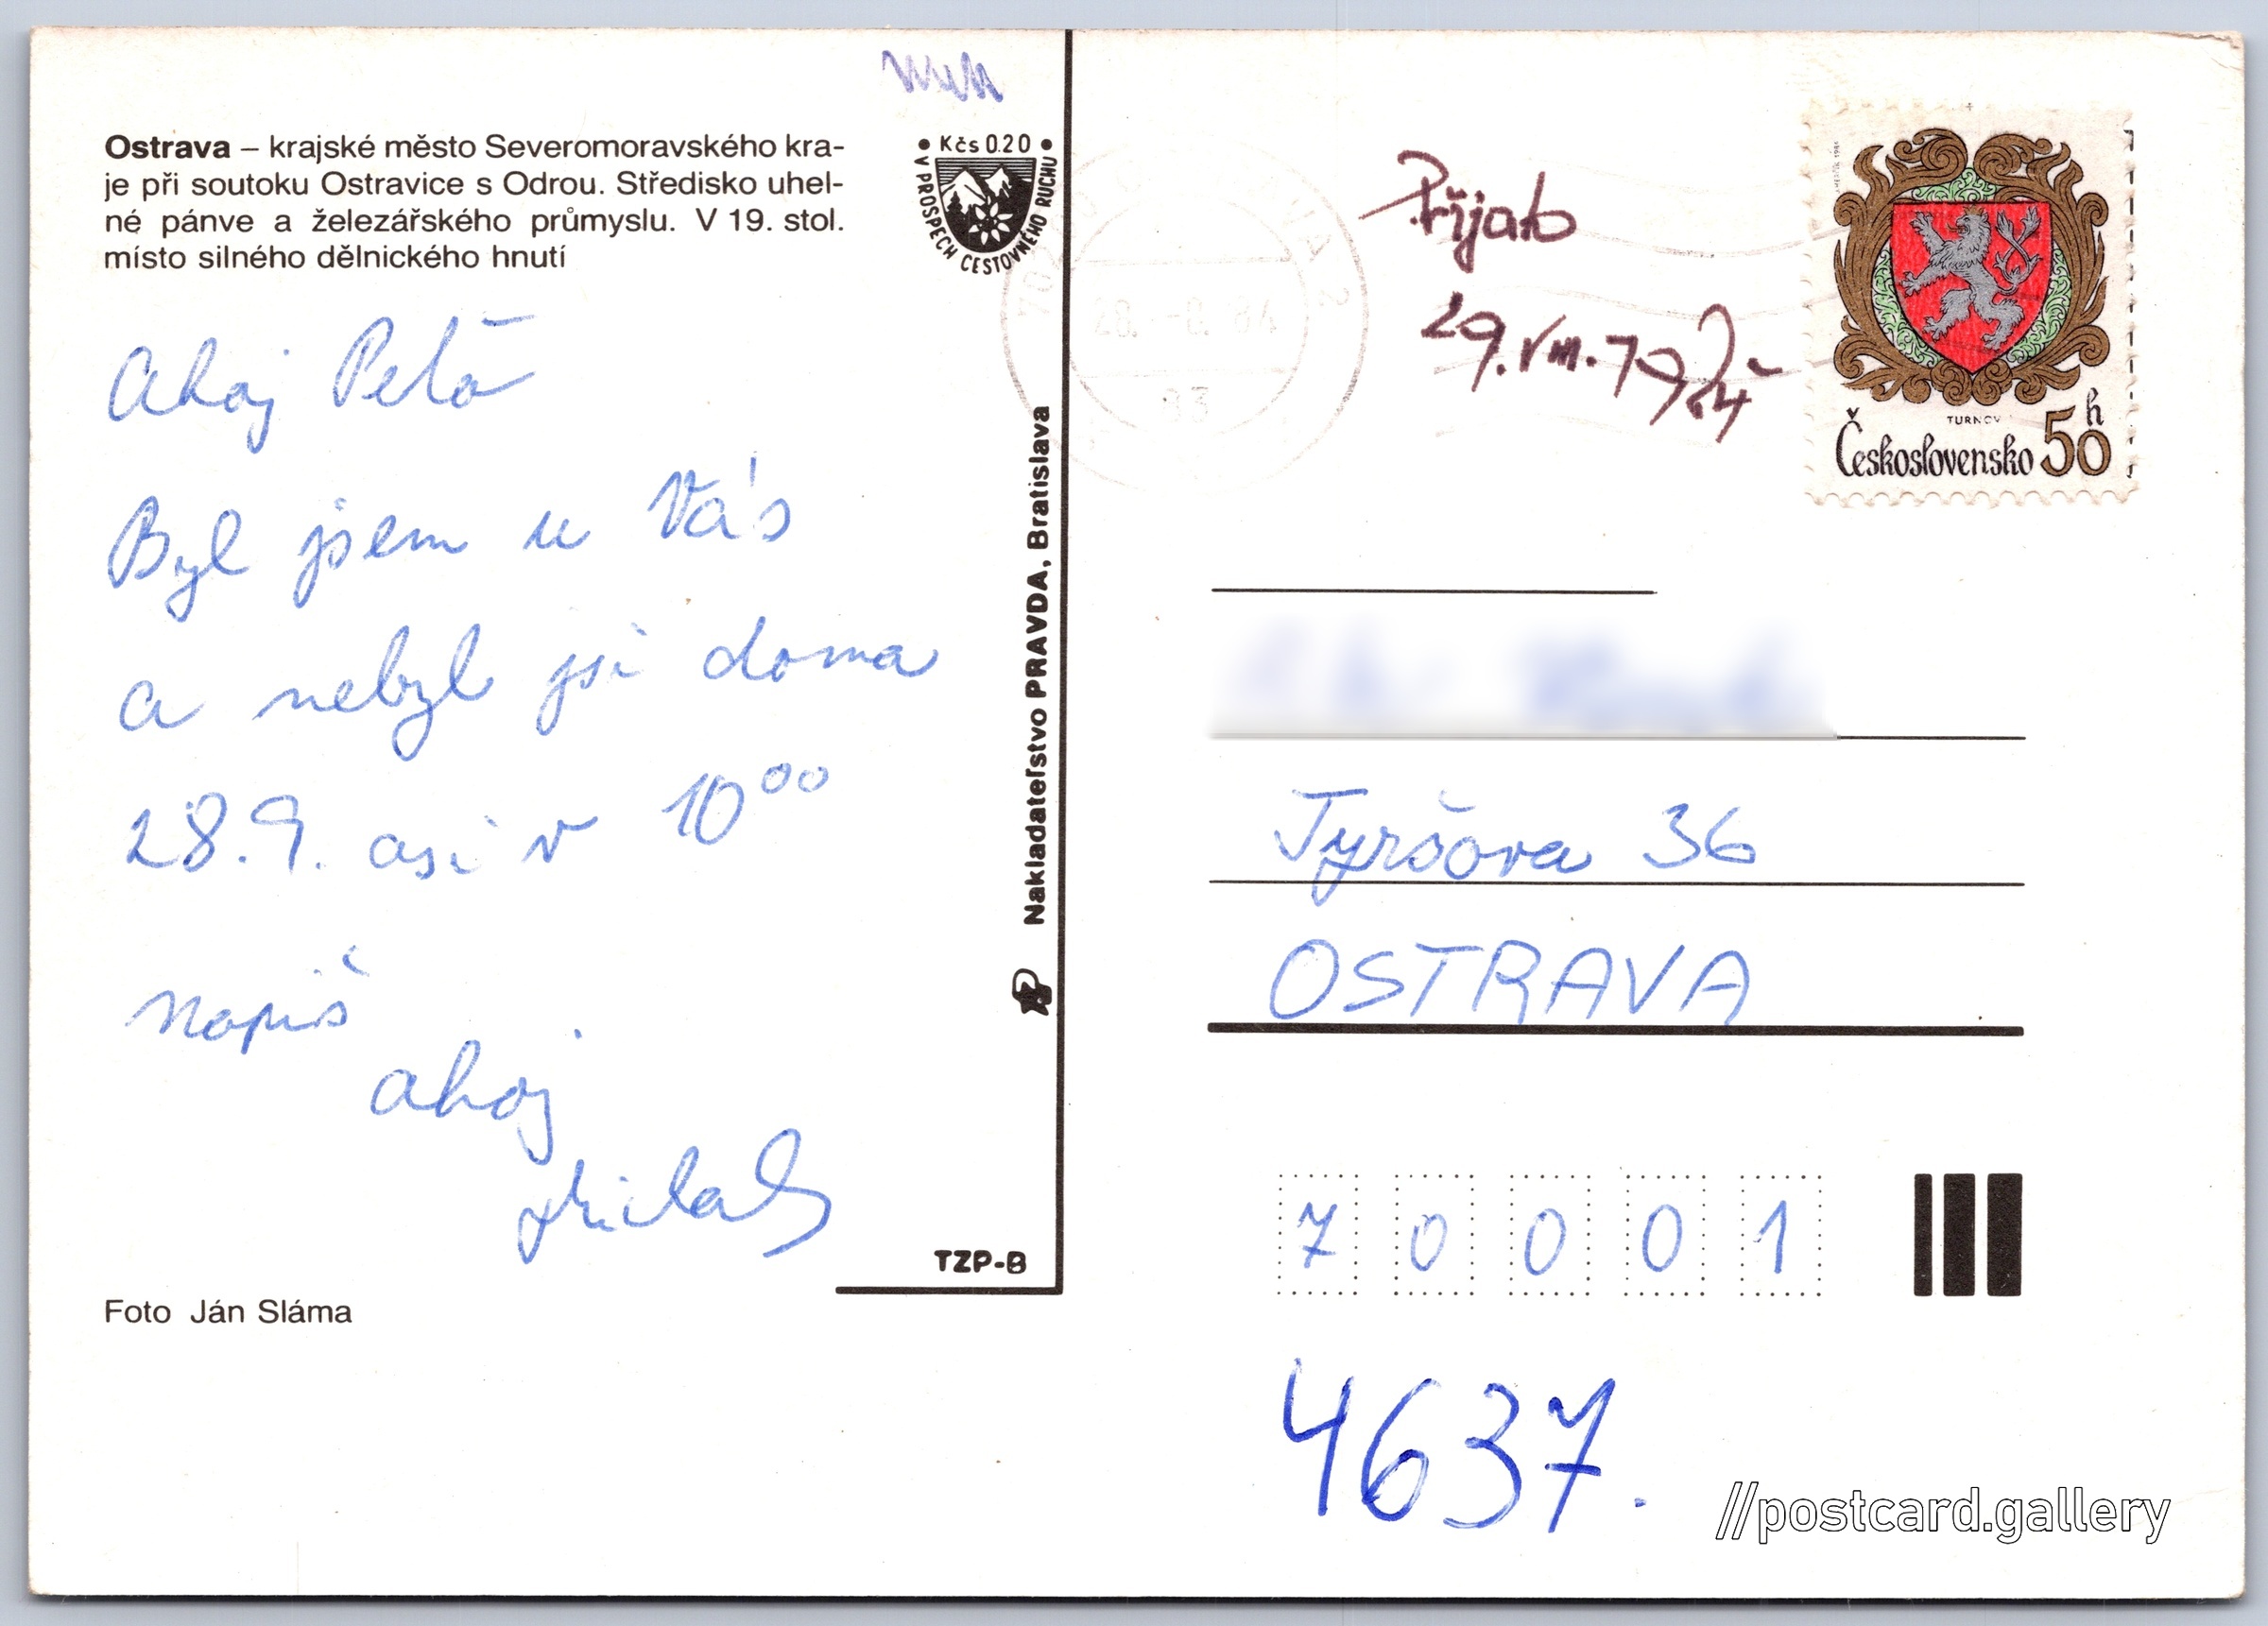 Ostrava – krajské město Severomoravského kra-
je při soutoku Ostravice s Odrou. Středisko uhel-
né pánve a železářského průmyslu. V 19. stol.
místo silného dělnického hnutí
• Kčs 0.20 •
V PROSPECH CESTOVNÉHO RUCHU
Ahoj
Byl jsem u Vás
a nebyl jsi doma
28.9. asi v 10⁰⁰
napiš
ahoj
Nakladateľstvo PRAVDA, Bratislava
TZP-B
Foto Ján Sláma
Přijato
29.VIII.
TURNOV
Československo 50 h
Tyršova 36
OSTRAVA
7 0 0 0 1
4637.
//postcard.gallery